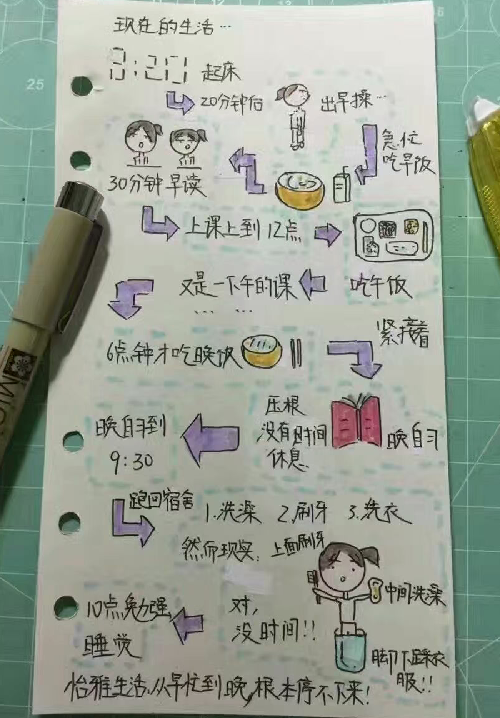 现在的生活…
8:20 起床
20分钟后
出早操…
急忙
吃早饭
30分钟早读
上课上到12点
吃午饭
又是一下午的课
… …
6点钟才吃晚饭
紧接着
晚自习
压根
没有时间
休息
晚自习到
9:30
跑回宿舍
1.洗澡 2.刷牙 3.洗衣
然而现实:
上面刷牙
中间洗澡
脚下踩衣
服!!
对,
没时间!!
10点勉强
睡觉
怡雅生活,从早忙到晚,根本停不下来!
25
MIC